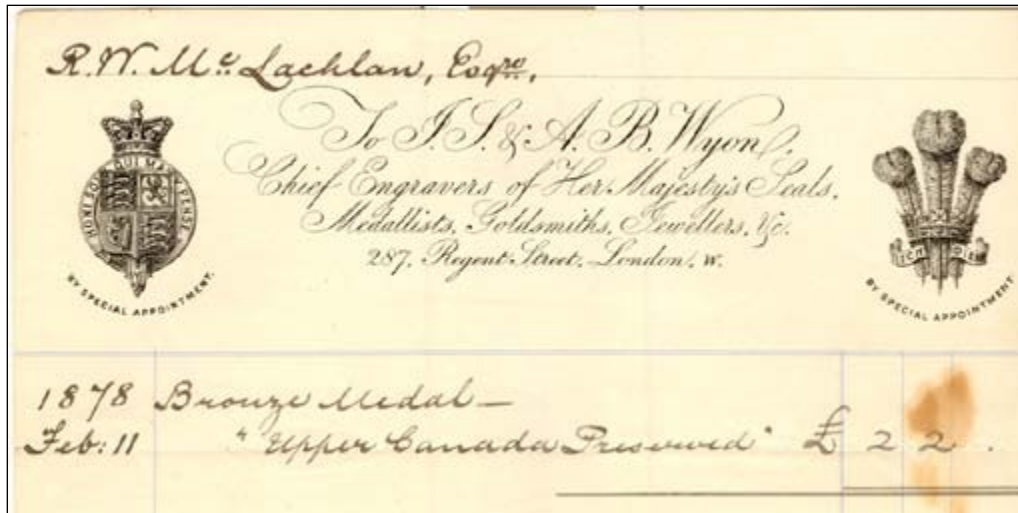 R. W. Mc. Lachlan, Esqre,
To J. S. & A. B. Wyon,
Chief Engravers of Her Majesty's Seals,
Medallists, Goldsmiths, Jewellers, &c.
287, Regent Street, London, W.
HONI SOIT QUI MAL Y PENSE
BY SPECIAL APPOINTMENT.
ICH DIEN
BY SPECIAL APPOINTMENT.
1878 Bronze Medal —
Feb: 11 "Upper Canada Preserved" £ 2 2 .